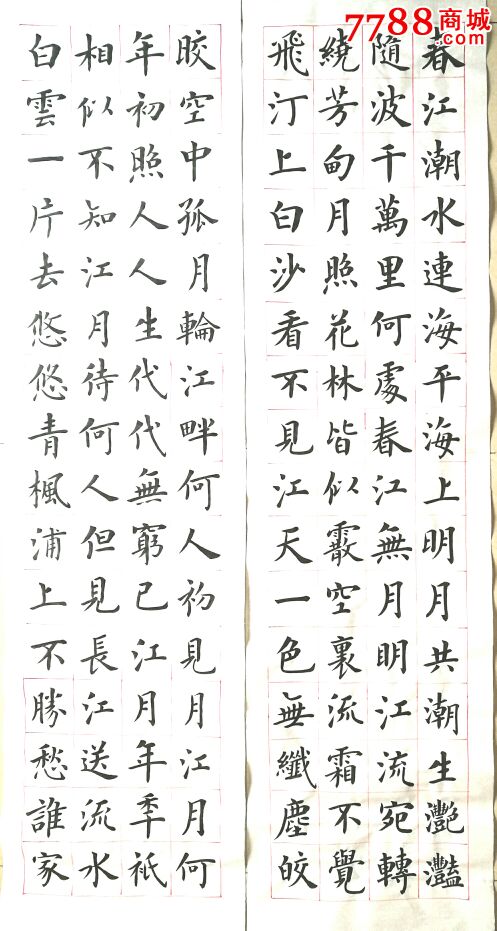 7788商城
.com
春江潮水連海平海上明月共潮生灧灩
隨波千萬里何處春江無月明江流宛轉
繞芳甸月照花林皆似霰空裏流霜不覺
飛汀上白沙看不見江天一色無纖塵皎
晈空中孤月輪江畔何人初見月江月何
年初照人人生代代無窮已江月年秊祇
相似不知江月待何人但見長江送流水
白雲一片去悠悠青楓浦上不勝愁誰家